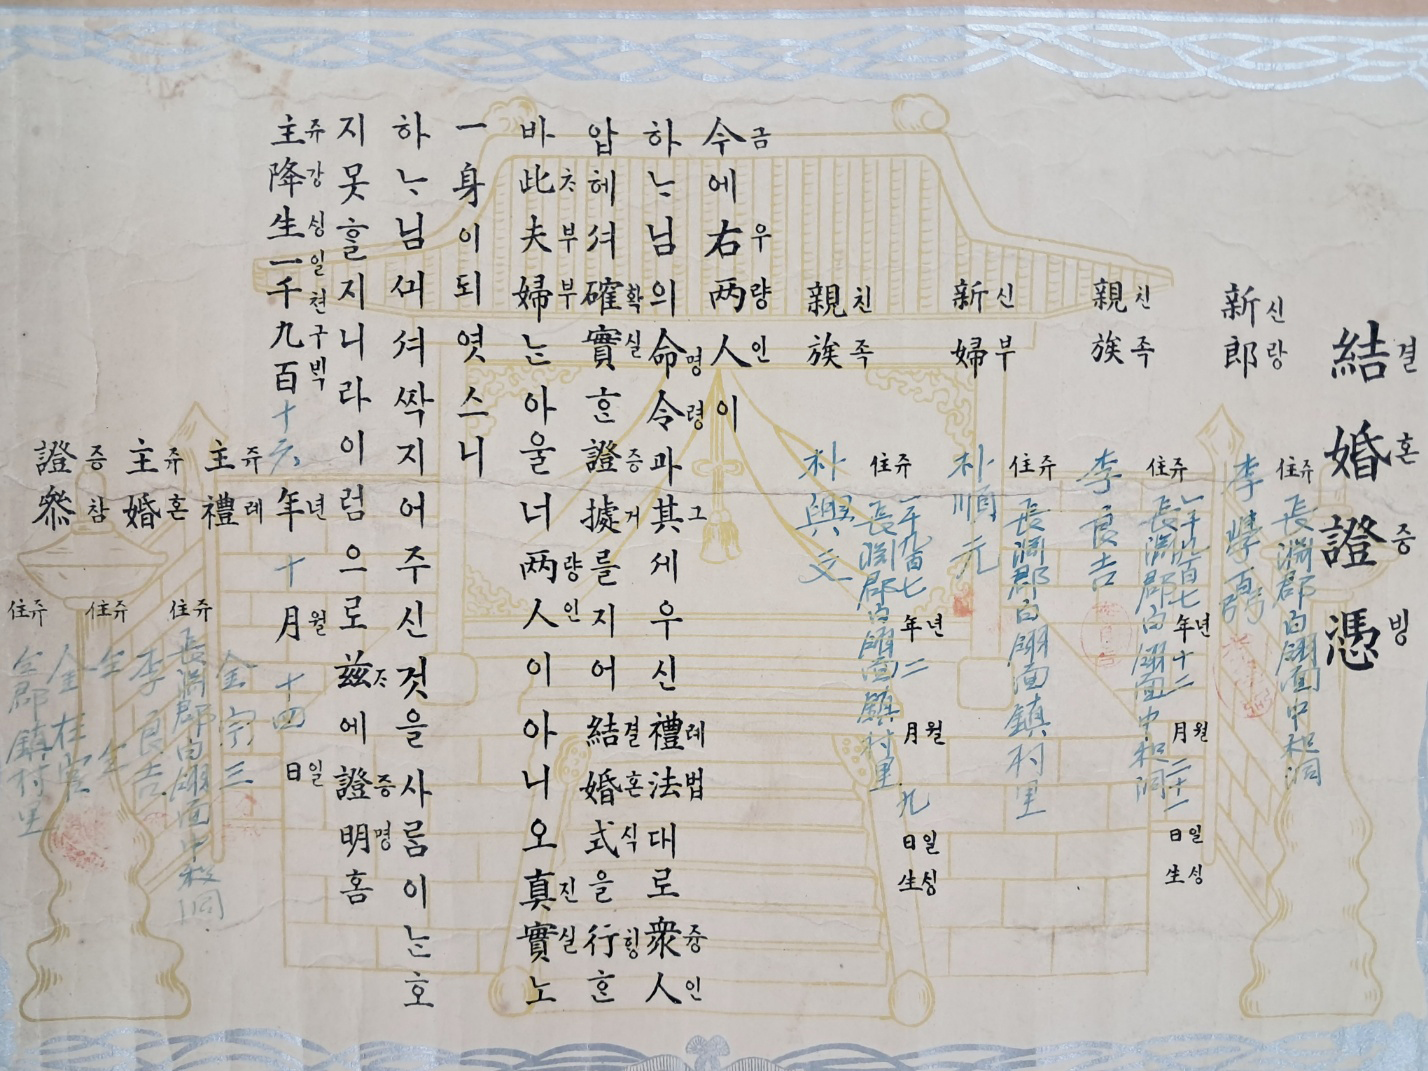 結婚證憑 결혼증빙
新郎 신랑
住쥬 長淵郡白翎面中和洞
李學
親族 친족
住쥬 一千九百七年년十二月월二十一日일生싱
長淵郡白翎面中和洞
李良吉
新婦 신부
住쥬 長淵郡白翎面鎮村里
朴順元
親族 친족
住쥬 一千九百七年년二月월九日일生싱
長淵郡白翎面鎮村里
朴興文
今금에右우两량人인이
하ᄂᆞ님의命명令령과其그세우신禮례法법대로衆즁人인
압헤셔確확實실ᄒᆞᆫ證증據거를지어結결婚혼式식을行ᄒᆡᆼᄒᆞᆫ
바此ᄎᆞ夫부婦부ᄂᆞᆫ아울너两량人인이아니오真진實실노
一身이되엿스니
하ᄂᆞ님ᄭᅴ셔ᄶᅡᆨ지어주신것을사ᄅᆞᆷ이ᄂᆞᆫ호
지못ᄒᆞᆯ지니라이럼으로玆ᄌᆞ에證증明명홈
主쥬降강生싱一일千쳔九구百ᄇᆡᆨ十六年년十月월十四日일
主禮 쥬례
金宗三
住쥬 長淵郡白翎面中和洞
主婚 쥬혼
李良吉
住쥬 仝 仝
證叅 증참
金
住쥬 仝郡鎮村里